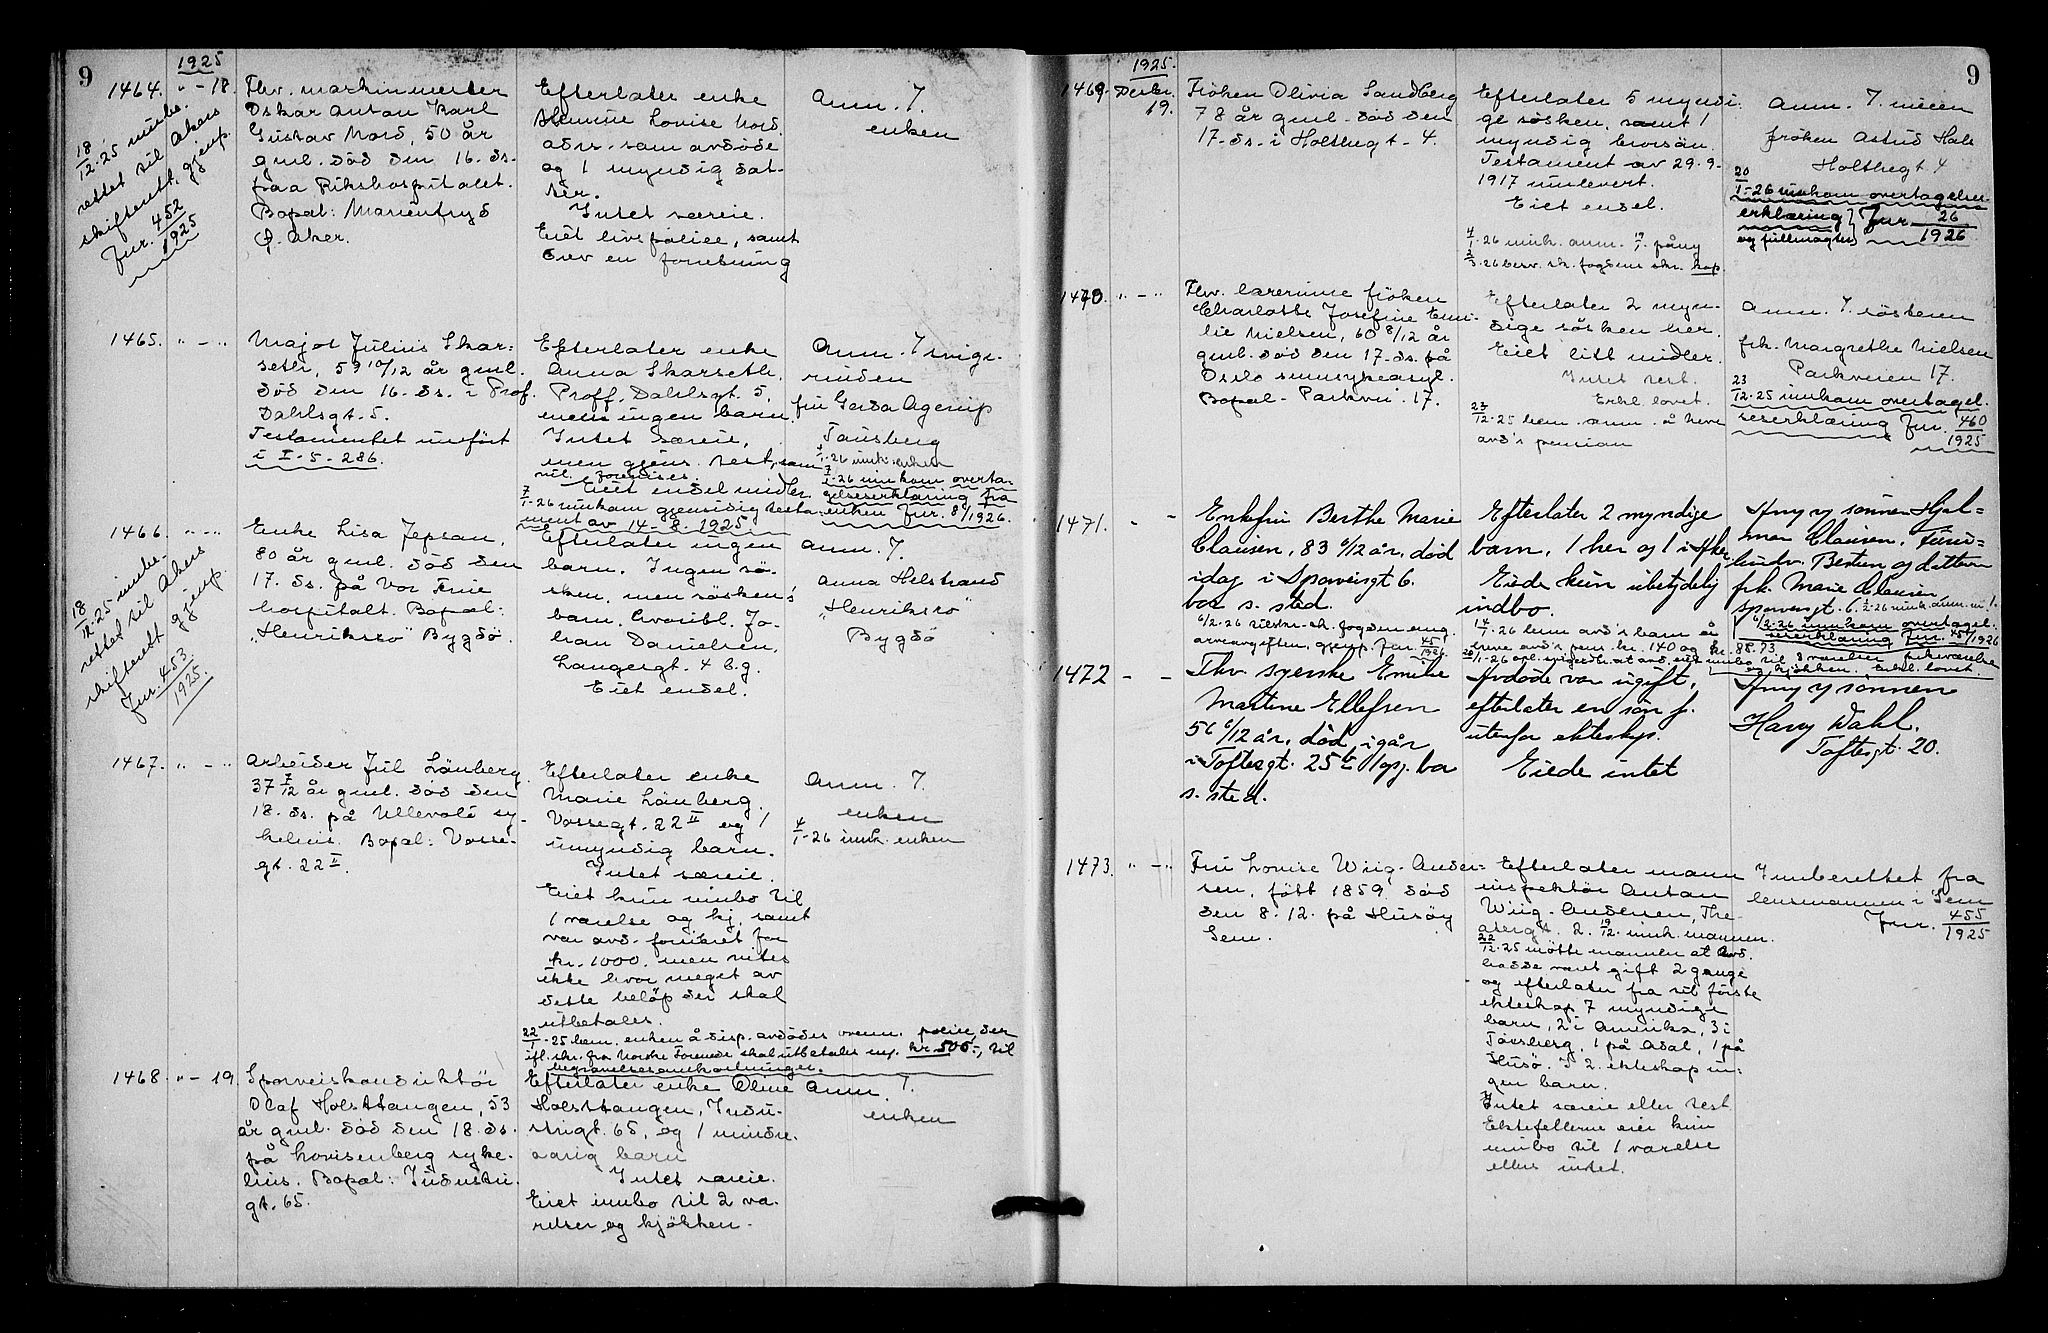 9
1925
1464. " - 18.
Fhv. maskinmester
Oskar Anton Karl
Gustav Nord, 50 år
gml. død den 16. ds.
fraa Rikshospitalet.
Bopæl: Marienfryd
Ø. Aker.
18/12-25 innbe-
rettet til Akers
skifterett, gjenp.
Jnr. 452/1925
Efterlater enke
Lovise Nord
adrs. som avdøde
og 1 myndig dat-
ter.
Intet særeie.
Eiet livspolice, samt
drev en forretning
Anm. 7.
enken
1465. " - "
Major Julius Skar-
seth, 59 10/12 år gml.
død den 16. ds. i Prof.
Dahlsgt. 5.
Testamentet innført
i I-5-286.
Efterlater enke
Anna Skarseth,
Proff. Dahlsgt. 5,
men ingen barn.
Intet særeie,
men gjens. test. som
vil forevises.
Eiet endel midler.
7/1-26 innkom gjensidig testa-
ment av 14-8-1925
Anm. 7 svige-
rinden
fru Gerda Agerup
Tønsberg
4/1-26 innk. enken
7/1-26 innkom overta-
gelseserklæring fra
enken Jnr. 8/1926.
1466. " - "
Enke Lisa Jepsen,
80 år gml. død den
17. ds. på Vor Frue
hospitalt. Bopæl:
"Henriksro" Bygdø.
18/12-25 innbe-
rettet til Akers
skifterett gjenp.
Jnr. 453/1925.
Efterlater ingen
barn. Ingen sø-
sken, men søsken-
barn, hvoribl. Jo-
han Danielsen,
Langesgt. 4 b.g.
Eiet endel.
Anm. 7.
Anna Helstrand
"Henriksro"
Bygdø
1467. " - "
Arbeider Jul Lønberg
37 7/12 år gml. død den
18. ds. på Ullevål sy-
kehus. Bopæl: Vosse-
gt. 22 II.
Efterlater enke
Marie Lønberg.
Vossegt. 22 II og 1
umyndig barn.
Intet særeie.
Eiet kun innbo til
1 værelse og kj. samt
var avd. forsikret for
kr. 1000. men vites
ikke hvor meget av
dette beløp der skal
utbetales.
22/1-25 bem. enken å disp. avdødes ovenn. police, der
ifl. skr. fra Norske Forenede skal utbetales m. kr. 500-, til
begravelsesomkostninger.
Anm. 7.
enken
4/1-26 innk. enken
1468. " - 19.
Sporveiskonduktør
Olaf Holsttangen, 53
år gml. død den 18. ds.
på Lovisenberg syke-
hus. Bopæl: Industri-
gt. 65.
Efterlater enke Oline
Holsttangen, Indu-
strigt. 65, og 1 mindre-
aarig barn
Intet særeie.
Eiet innbo til 2 væ-
relser og kjøkken.
Anm. 7.
enken
9
1925.
1469. Desbr.
19.
Frøken Olivia Sandberg
78 år gml. død den
17. ds. i Holtegt. 4.
Efterlater 5 myndi-
ge søsken, samt 1
myndig brorsøn.
Testament av 29.9.
1917 innlevert.
Eiet endel.
4/1-26 innk. anm. 19/1. påny
3/3-26 besv. sk. fogdens skr. kop.
Anm. 7. niesen
frøken Astrid Hals
Holtegt 4
20/1-26 innkom overtagelses-
erklæring
og fullmagter
Jnr. 26/1926
1470. " - "
Fhv. lærerinne frøken
Charlotte Josefine Emi-
lie Nielsen, 60 8/12 år
gml. død den 17. ds. på
Oslo sinnsykeasyl.
Bopæl - Parkvei. 17.
Efterlater 2 myn-
dige søsken her.
Eiet litt midler.
Intet test.
Erkl. lovet.
23/12-25 bem. anm. å heve
avd's pension
Anm. 7. søsteren
frk. Margrethe Nielsen
Parkveien 17.
23/12-25 innkom overtagel-
seserklæring Jnr. 460/1925
1471. - "
Enkefru Berthe Marie
Clausen, 83 6/12 år, død
idag i Sporveisgt 6.
bor s. sted.
6/2-26 tilstn. sk. fogden ang.
arveavgiften, gjenp. Jnr. 45/1926
Efterlater 2 myndige
barn, 1 her og 1 i Aker
Eiede kun ubetydelig
indbo.
14/1-26 bem avd's barn å
heve avd's pens. kr. 140 og kr. 88.73
Anm 7 sønnen Hjal-
mar Clausen,
Bestun og datteren
frk. Marie Clausen
Sporveisgt. 6. 2/2-26 innk. anm. nr. 1.
6/2-26 innkom overtagel-
seserklæring Jnr. 45/1926
1472 - -
Fhv. syerske Emilie
Martine Ellefsen
56 6/12 år, død igår
i Toftesgt. 25 b opg. bor
s. sted.
Avdøde var ugift,
efterlater en søn f.
utenfor ekteskap.
Eiede intet
Anm 7 sønnen
Harry Dahl.
Toftesgt. 20.
1473. " - "
Fru Lovise Wiig-Ander-
sen, født 1859, død
den 8. 12. på Husøy
Sem.
Efterlater mann
inspektør Anton
Wiig-Andersen, The-
atergt. 2. 19/12. innk. mannen.
22/12-25 møtte mannen at avd.
hadde været gift 2 gange
og efterlater fra sit første
ekteskap 7 myndige
barn, 2 i Amerika, 3 i
Tønsberg, 1 på Adal, 1 på
Husø. I 2. ekteskap in-
gen barn.
Intet særeie eller test
Ektefellerne eier kun
innbo til 1 værelse
eller intet.
Innberettet fra
lensmannen i Sem
Jnr. 455/1925